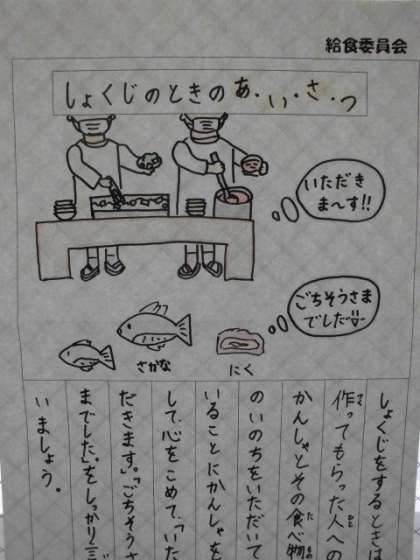 給食委員会
しょくじのときのあ・い・さ・つ
いただき
ま〜す!!
ごちそうさま
でした
さかな
にく
しょくじをするときは
作ってもらった人への
かんしゃとその食べ物
のいのちをいただいて
いることにかんしゃを
して、心をこめて、「いた
だきます。」「ごちそうさ
までした」をしっかり言
いましょう。